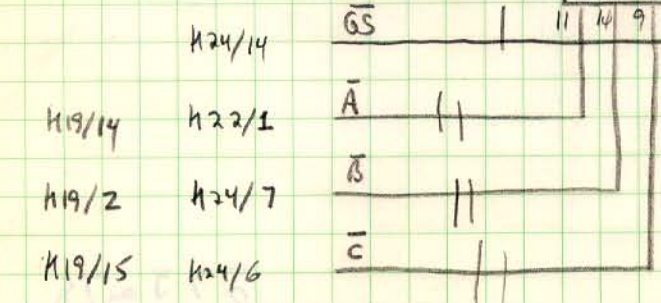 H24/14 G̅S̅ 11 14 9
H19/14 H22/1 A̅
H19/2 H24/7 B̅
H19/15 H24/6 C̅